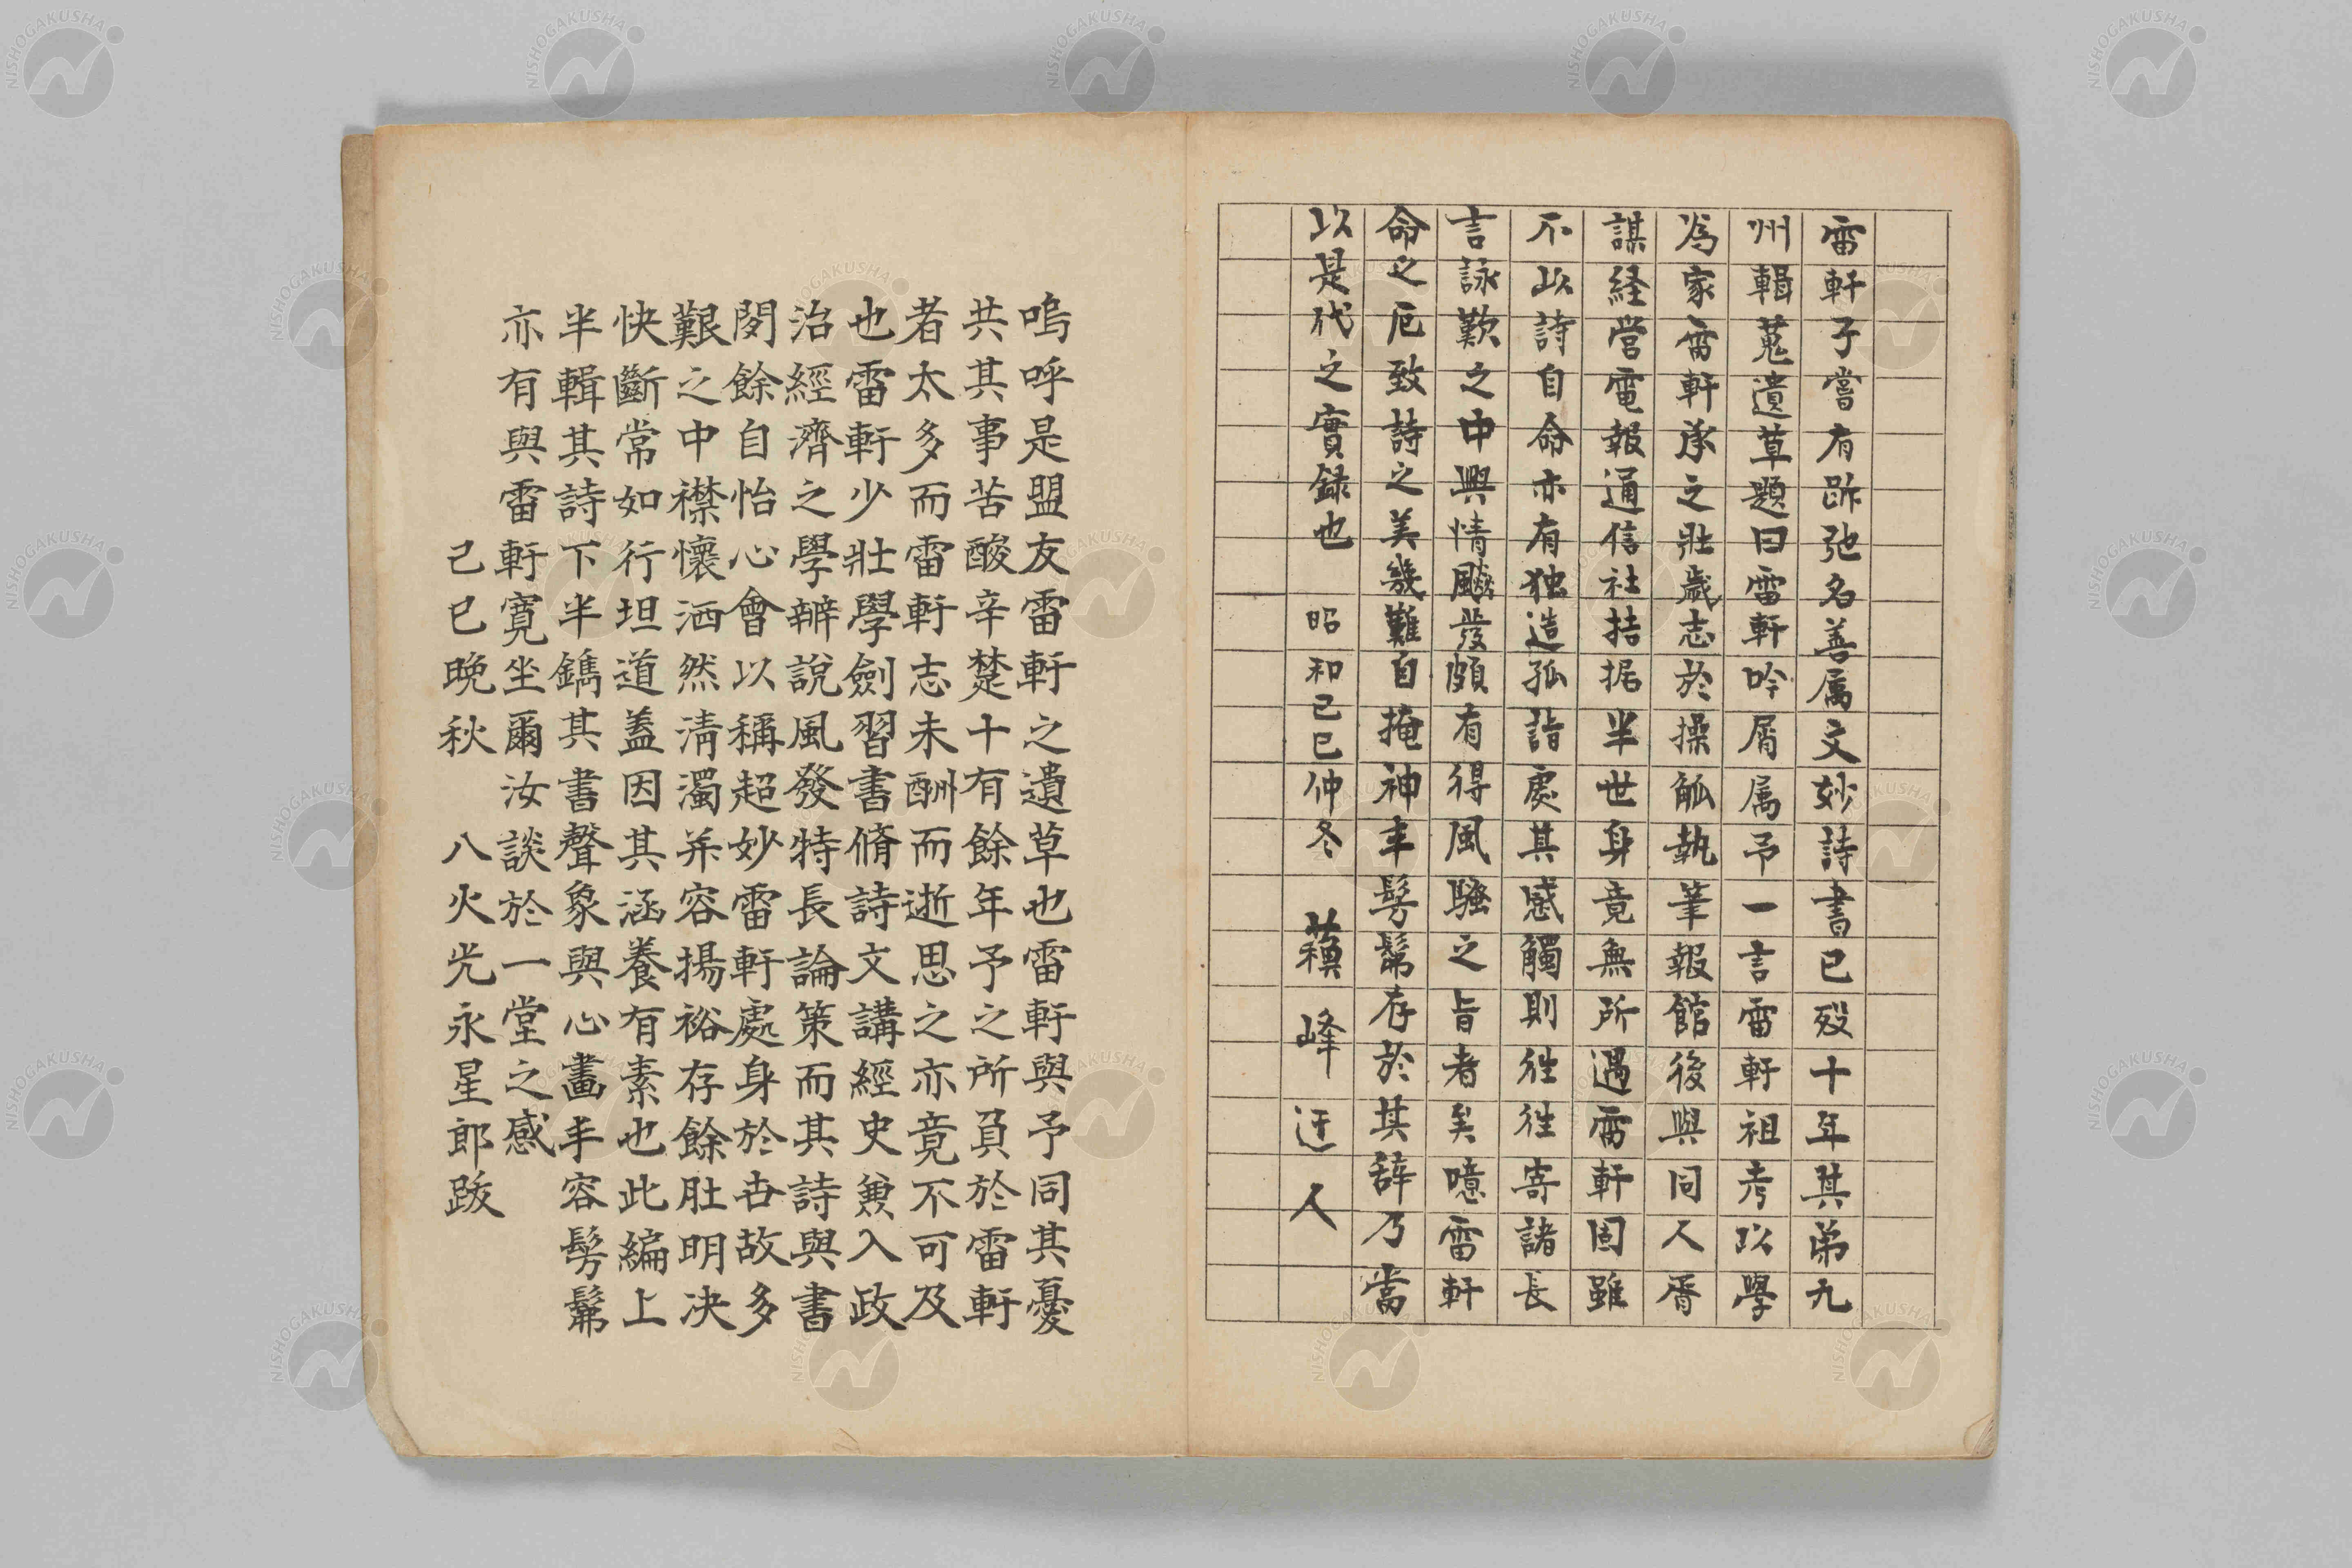 雷軒子嘗有跅弛名善属文妙詩書已歿十年其弟九
州輯蒐遺草題曰雷軒吟屑属予一言雷軒祖考以學
為家雷軒承之壯歳志於操觚執筆報館後與同人胥
謀経営電報通信社拮据半世身竟無所遇雷軒固雖
不以詩自命亦有独造孤詣處其感觸則徃徃寄諸長
言詠歎之中興情飈發頗有得風騒之旨者矣噫雷軒
命之厄致詩之美幾難自掩神丰髣髴存於其辞乃當
以是代之實録也 昭和己巳仲冬 蘓峰迂人
嗚呼是盟友雷軒之遺草也雷軒與予同其憂
共其事苦酸辛楚十有餘年予之所負於雷軒
者太多而雷軒志未酬而逝思之亦竟不可及
也雷軒少壯學劍習書脩詩文講經史兼入政
治經濟之學辨説風發特長論策而其詩與書
閔餘自怡心會以稱超妙雷軒處身於世故多
艱之中襟懷洒然清濁并容揚裕存餘肚明决
快斷常如行坦道蓋因其涵養有素也此編上
半輯其詩下半鐫其書聲象與心畫丰容髣髴
亦有與雷軒寛坐爾汝談於一堂之感
己巳晩秋 八火光永星郎跋
NISHOGAKUSHA